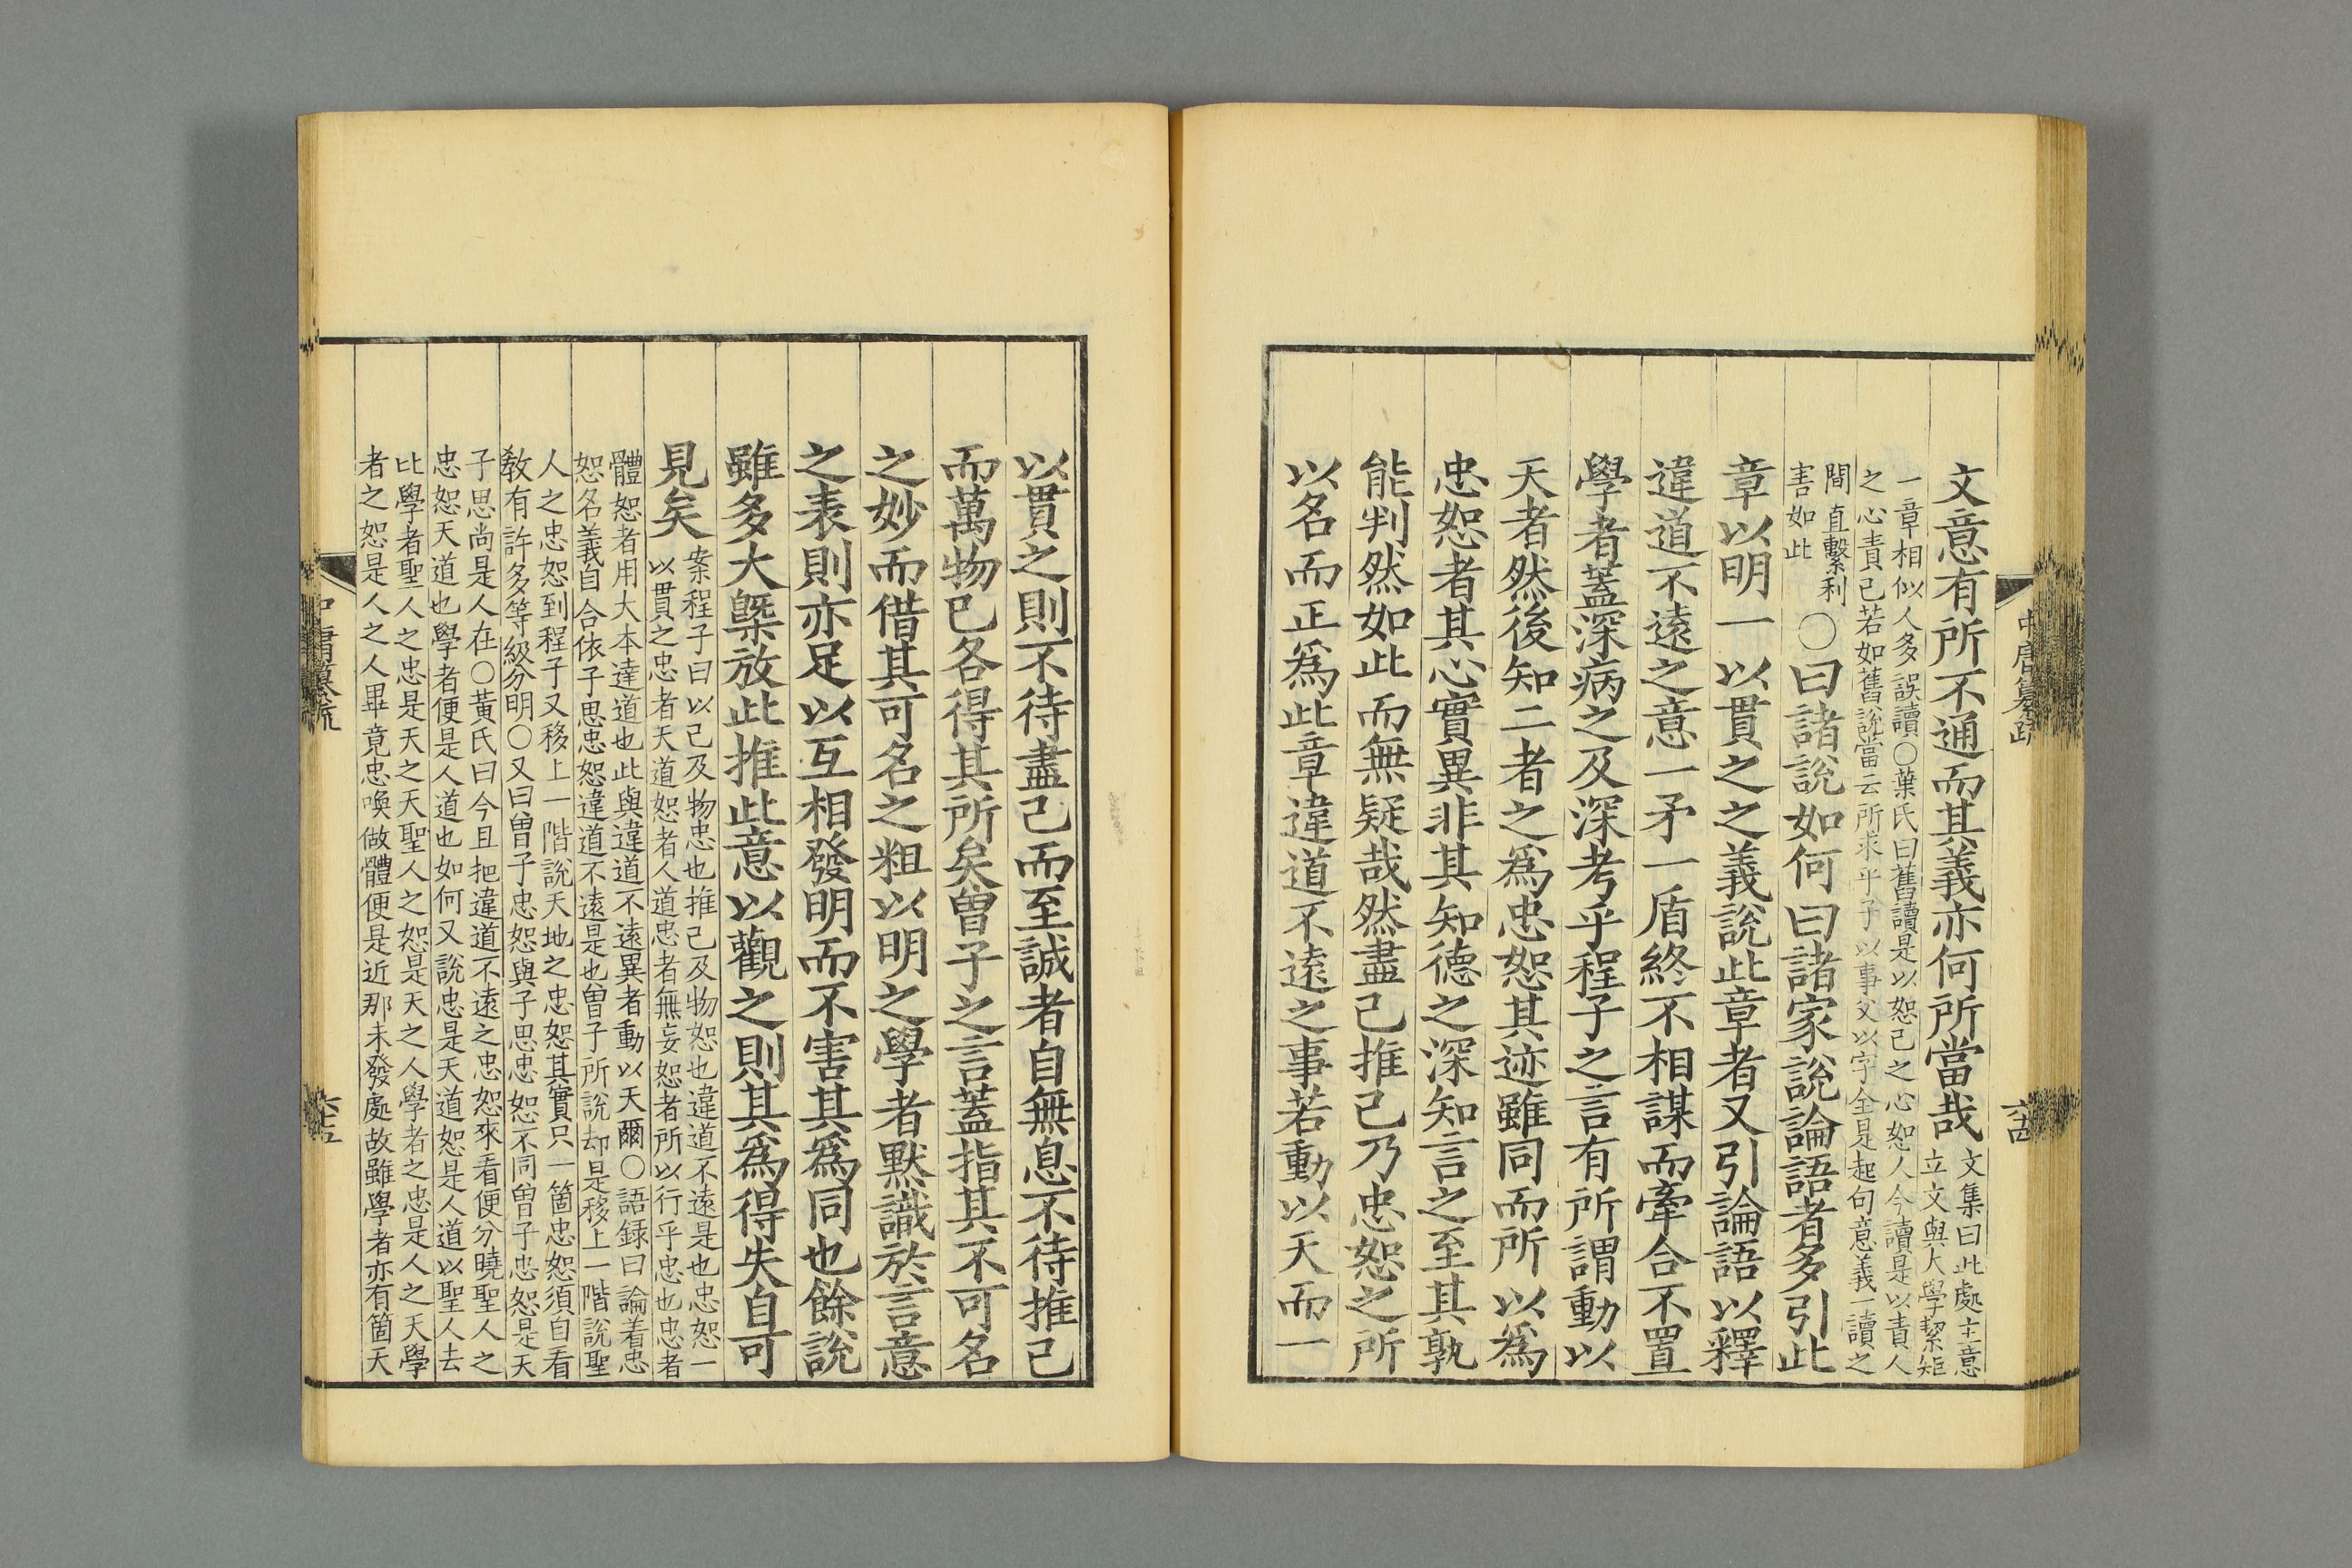 文意有所不通而其義亦何所當哉文集曰此處主意
立文與大學絜矩
一章相似人多誤讀〇葉氏曰舊讀是以恕己之心恕人今讀是以責人
之心責己若如舊說當云所求乎子以事父以字全是起句意義一讀之
間直繫利
害如此
〇曰諸說如何曰諸家說論語者多引此
章以明一以貫之之義說此章者又引論語以釋
違道不遠之意一矛一盾終不相謀而牽合不置
學者蓋深病之及深考乎程子之言有所謂動以
天者然後知二者之為忠恕其迹雖同而所以為
忠恕者其心實異非其知德之深知言之至其孰
能判然如此而無疑哉然盡己推己乃忠恕之所
以名而正為此章違道不遠之事若動以天而一
以貫之則不待盡己而至誠者自無息不待推己
而萬物已各得其所矣曾子之言蓋指其不可名
之妙而借其可名之粗以明之學者默識於言意
之表則亦足以互相發明而不害其為同也餘說
雖多大槩放此推此意以觀之則其為得失自可
見矣案程子曰以己及物忠也推己及物恕也違道不遠是也忠恕一
以貫之忠者天道恕者人道忠者無妄恕者所以行乎忠也忠者
體恕者用大本達道也此與違道不遠異者動以天爾〇語録曰論着忠
恕名義自合依子思忠恕違道不遠是也曾子所說却是移上一階說聖
人之忠恕到程子又移上一階說天地之忠恕其實只一箇忠恕須自看
敎有許多等級分明〇又曰曾子忠恕與子思忠恕不同曾子忠恕是天
子思尚是人在〇黃氏曰今且把違道不遠之忠恕來看便分曉聖人之
忠恕天道也學者便是人道也如何又說忠是天道恕是人道以聖人去
比學者聖人之忠是天之天聖人之恕是天之人學者之忠是人之天學
者之恕是人之人畢竟忠喚做體便是近那未發處故雖學者亦有箇天